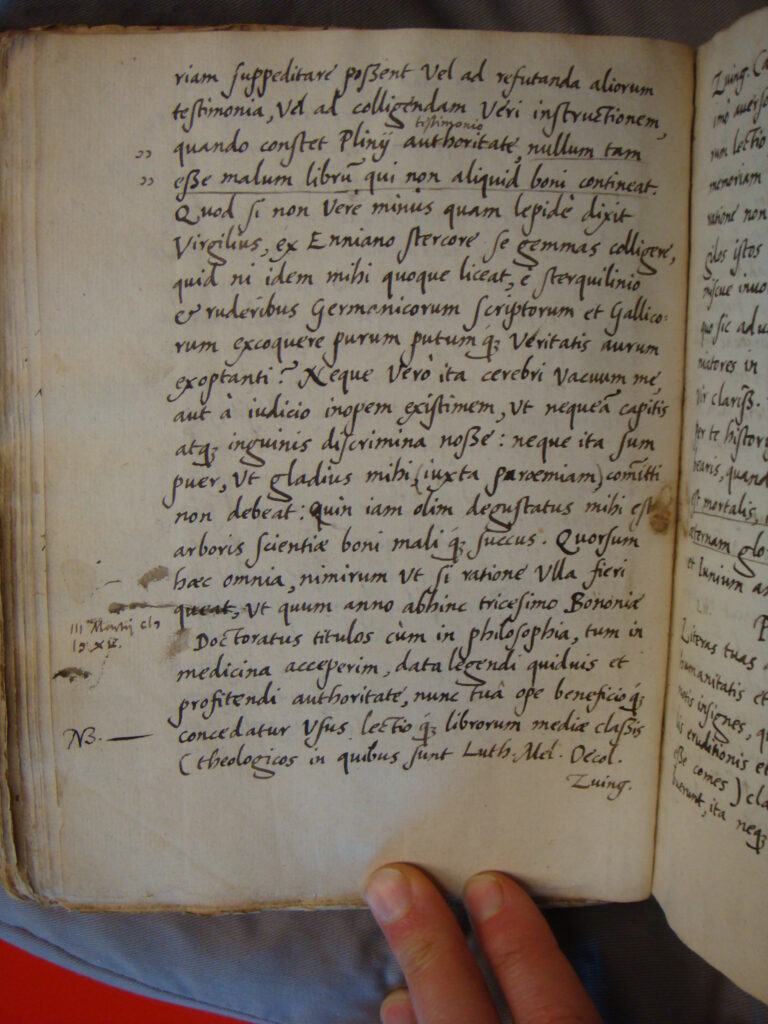 riam suppeditare poßent Vel ad refutanda aliorum
testimonia, Vel ad colligendam Veri instructionem,
testimonio
quando constet Plinij authoritate, nullum tam
eße malum librū qui non aliquid boni contineat.
Quod si non Vere minùs quam lepidè dixit
Virgilius, ex Enniano stercore se gemmas colligere,
quid ni idem mihi quoque liceat, è sterquilinio
& ruderibus Germanicorum scriptorum et Gallico:
rum excoquere purum putum q́; Veritatis aurum
exoptanti? Neque Verò ita cerebri Vacuum me,
aut à iudicio inopem existimem, Ut nequeā capitis
atq; inguinis discrimina noße: neque ita sum
puer, Ut gladius mihi, (iuxta paroemiam) com̄itti
non debeat: Quin iam olim degustatus mihi est
arboris scientiæ boni mali q́; succus. Quorsum
hæc omnia, nimirum Ut si ratione Ulla fieri
queat, Ut quum anno abhinc tricesimo Bononiæ
III Martij
Doctoratus titulos cùm in philosophia, tum in
medicina acceperim, data legendi quiduis et
profitendi authoritate, nunc tuâ ope beneficio q́;
NB. concedatur Usus lectio q́; librorum mediæ claßis
(theologicos in quibus sunt Luth. Mel. Oecol.
Zuing.
Zuing.
rum lectio
memoriam
ratione non
istos
quo sic
in
Vir clariß.
per te
quand
mortalis,
æternam glo
et
Literas tuas
humanitatis et
insignes, q
eruditionis et
eße comes) cla
ita neq;